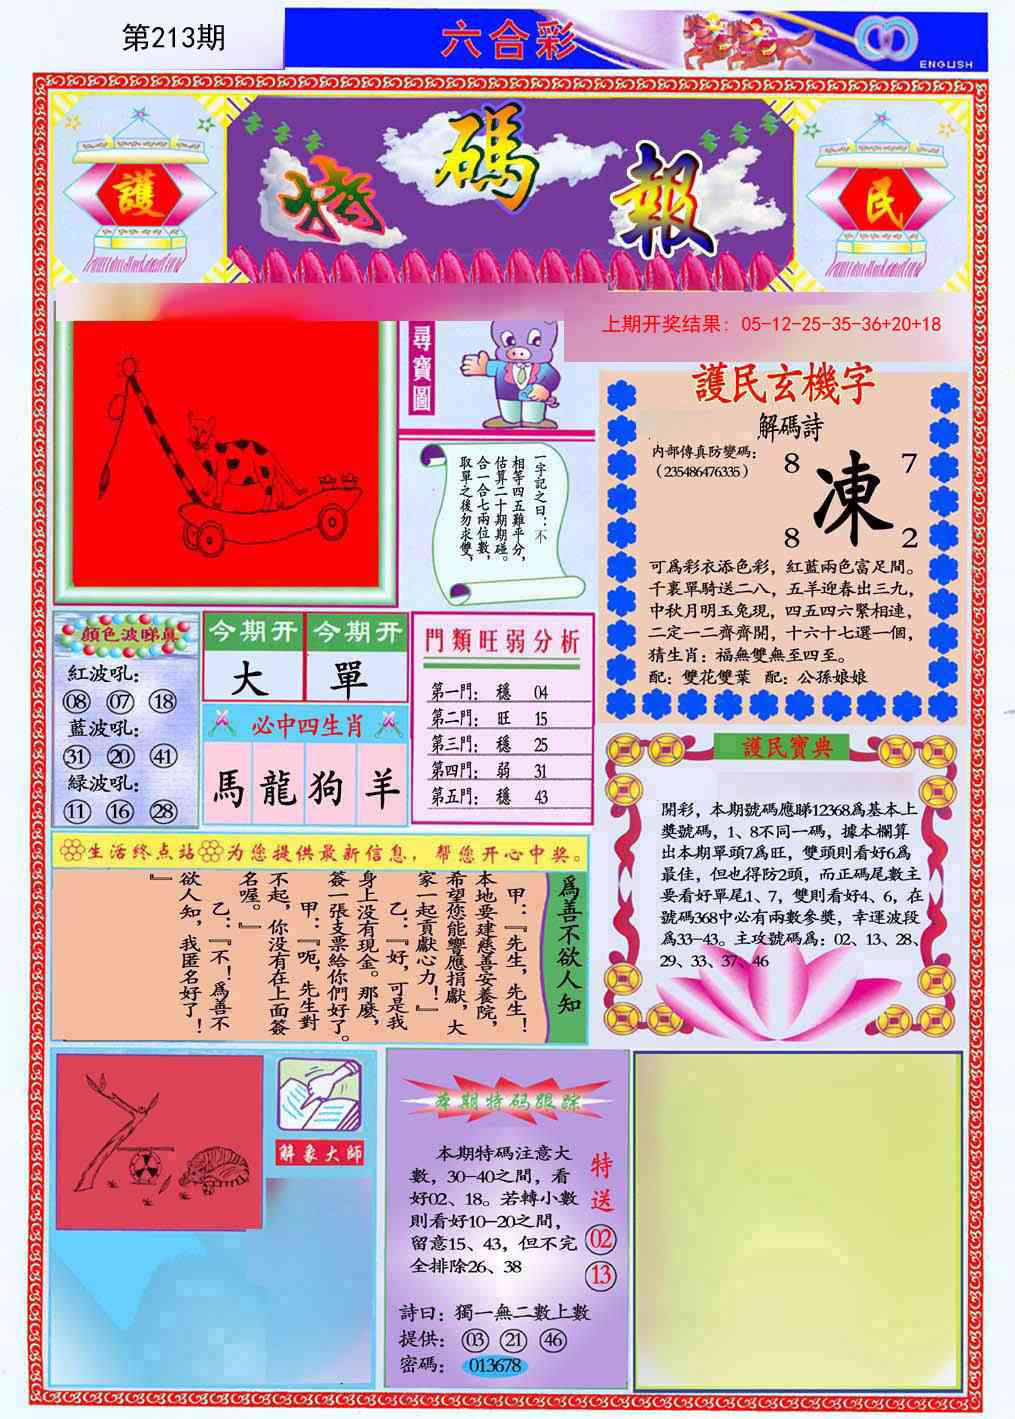 第213期
六合彩
ENGLISH
護
特碼報
民
上期开奖结果：05-12-25-35-36+20+18
尋寶圖
一字記之曰：不
相等四五難平分，
估算二十期期碰。
合一合七兩位數，
取單之後勿求雙，
護民玄機字
解碼詩
内部傳真防變碼：
（235486476335）
8
7
凍
8
2
可爲彩衣添色彩，紅藍兩色富足間。
千裏單騎送二八，五羊迎春出三九，
中秋月明玉兔現，四五四六緊相連，
二定一二齊齊開，十六十七選一個，
猜生肖：福無雙無至四至。
配：雙花雙葉 配：公孫娘娘
顔色波睇真
紅波吼：
08 07 18
藍波吼：
31 20 41
緑波吼：
11 16 28
今期开 今期开
大 單
必中四生肖
馬 龍 狗 羊
門類旺弱分析
第一門： 穩 04
第二門： 旺 15
第三門： 穩 25
第四門： 弱 31
第五門： 穩 43
護民寶典
開彩，本期號碼應睇12368爲基本上
獎號碼，1、8不同一碼，據本欄算
出本期單頭7爲旺，雙頭則看好6爲
最佳，但也得防2頭，而正碼尾數主
要看好單尾1、7，雙則看好4、6，在
號碼368中必有兩數參獎，幸運波段
爲33-43。主攻號碼爲：02、13、28、
29、33、37、46
生活终点站 为您提供最新信息，帮您开心中奖。
爲善不欲人知
甲：『先生，先生！
本地要建慈善安養院，
希望您能響應捐獻，大
家一起貢獻心力！』
乙：『好，可是我
身上没有現金。那麼，
簽一張支票給你們好了。
甲：『呃，先生對
不起，你没有在上面簽
名喔。』
乙：『不！爲善不
欲人知，我匿名好了！
』
解象大師
本期特码跟踪
本期特碼注意大
數，30-40之間，看
好02、18。若轉小數
則看好10-20之間，
留意15、43，但不完
全排除26、38
特送
02
13
詩曰：獨一無二數上數
提供：03 21 46
密碼：013678